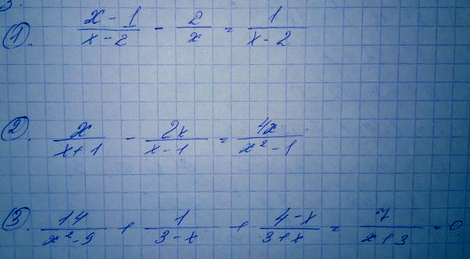 ①. (x-1)/(x-2) - 2/x = 1/(x-2)
②. x/(x+1) - 2x/(x-1) = 4x/(x²-1)
③. 14/(x²-9) + 1/(3-x) + (4-x)/(3+x) = 7/(x+3) - 0